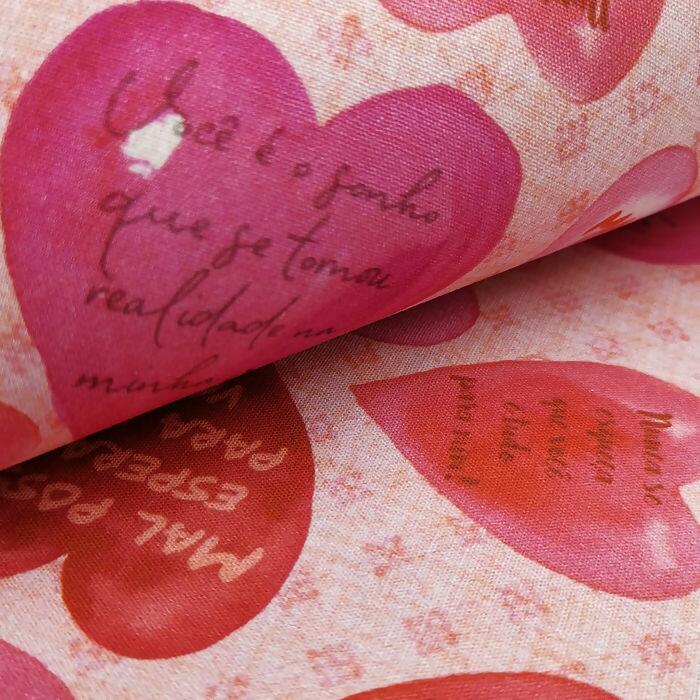 Você é o sonho
que se tornou
realidade na
minha
Nunca se
esqueça
que você
é tudo
para mim!
MAL POS
ESPERA
PARA